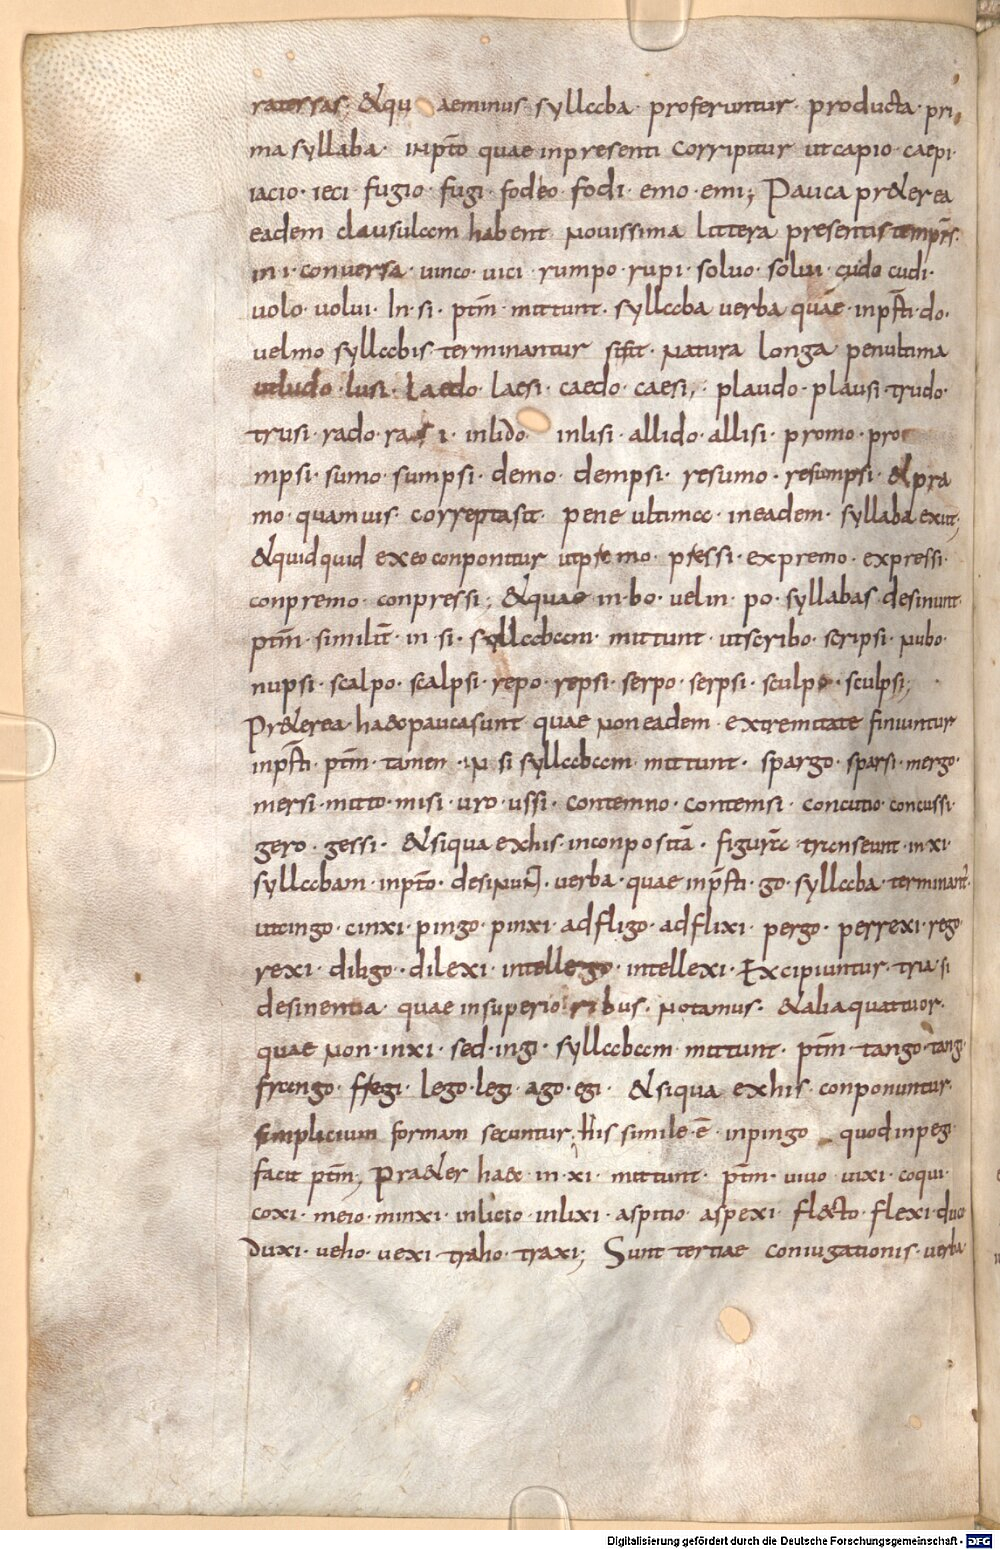 ratersas; &qu aeminus syllaba · proferuntur · producta · pri
ma syllaba · inp̄to quae inpresenti corripitur ut capio · caepi ·
iacio · ieci · fugio · fugi · fodeo · fodi · emo · emi; Pauca pr&erea
eadem clausulam habent novissima littera presentis tempr̄s ·
in · i · conversa · vinco · vici · rumpo · rupi · soluo · solui · cudo cudi ·
uolo · uolui · In · si · ptm̄ · mittunt · syllaba verba quae · inp̄sti · do ·
uel mo syllabis · terminantur si sit · natura longa penultima
ut ludo · lusi · laedo · laesi · caedo · caesi; · plaudo · plausi · trudo ·
trusi · rado · rasi · inlido · inlisi · allido · allisi · promo · pro
mpsi · sumo · sumpsi · demo · dempsi · resumo · resumpsi · &pra
mo · quamuis · correpta sit · pene ultima · ineadem · syllaba exit;
&quidquid exeo conponitur ut premo · pressi · expremo · expressi ·
conpremo · conpressi; &quae in · bo · uel in · po · syllabas desinunt ·
ptm̄ · similit̄ · in · si · syllabam · mittunt · ut scribo · scripsi · nubo ·
nupsi · scalpo · scalpsi · repo · repsi · serpo · serpsi · sculpo · sculpsi;
Pr&erea haec pauca sunt quae non eadem extremitate finiuntur
inp̄sti · ptm̄ · tamen · in si syllabam mittunt · spargo · sparsi · mergo ·
mersi · mitto · misi · uro · ussi · contemno · contemsi · concutio · concussi ·
gero · gessi · &siqua exhis · inconposita · figura · transeunt · in · xi ·
syllabam · inp̄to · desinun̄t · verba · quae inp̄sti · go · syllaba · terminant̄ ·
ut cingo · cinxi · pingo · pinxi · adfligo · adflixi · pergo · perrexi · rego
rexi · diligo · dilexi · intellego · intellexi · Excipiuntur · tria · si
desinentia · quae insuperioribus · notamus · &alia quattuor ·
quae non · inxi · sed · ingi · syllabam mittunt · ptm̄ · tango · tang
frango · fregi · lego · legi · ago · egi · &siqua exhis · conponuntur ·
simplicium forman secuntur; his simile · ē · inpingo quod inpegi ·
facit ptm̄; Pra&er haec · in · xi · mittunt · ptm̄ · uiuo uixi · coquo ·
coxi · meio · minxi · inlicio · inlixi · aspitio aspexi · flecto · flexi · duco
duxi · ueho · uexi · traho · traxi; Sunt tertiae coniugationis · verba
Digitalisierung gefördert durch die Deutsche Forschungsgemeinschaft - DFG